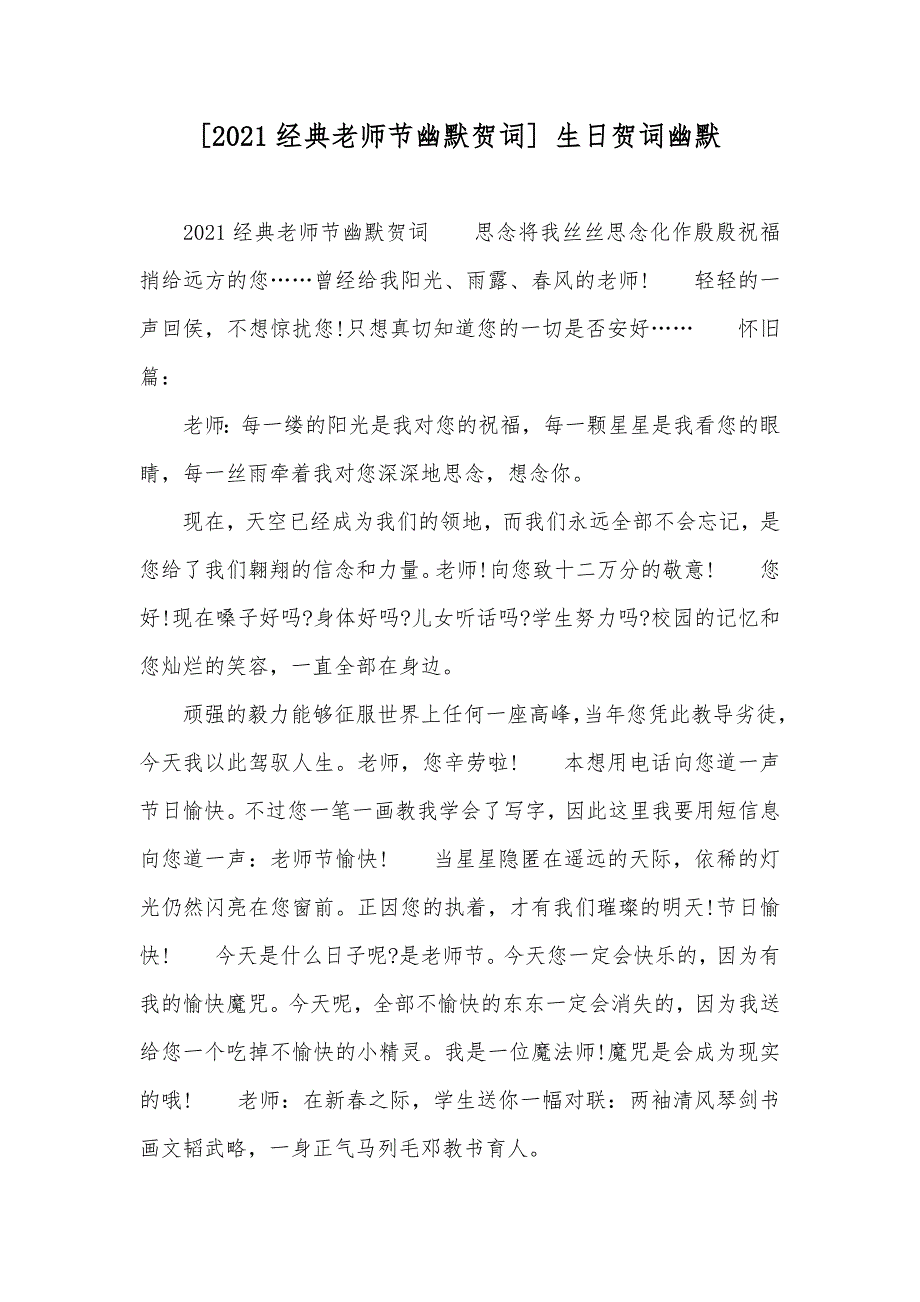 [2021经典老师节幽默贺词] 生日贺词幽默
2021经典老师节幽默贺词  思念将我丝丝思念化作殷殷祝福
捎给远方的您……曾经给我阳光、雨露、春风的老师!  轻轻的一
声回侯，不想惊扰您!只想真切知道您的一切是否安好……  怀旧
篇：
老师：每一缕的阳光是我对您的祝福，每一颗星星是我看您的眼
睛，每一丝雨牵着我对您深深地思念，想念你。
现在，天空已经成为我们的领地，而我们永远全部不会忘记，是
您给了我们翱翔的信念和力量。老师!向您致十二万分的敬意!  您
好!现在嗓子好吗?身体好吗?儿女听话吗?学生努力吗?校园的记忆和
您灿烂的笑容，一直全部在身边。
顽强的毅力能够征服世界上任何一座高峰，当年您凭此教导劣徒，
今天我以此驾驭人生。老师，您辛劳啦!  本想用电话向您道一声
节日愉快。不过您一笔一画教我学会了写字，因此这里我要用短信息
向您道一声：老师节愉快!  当星星隐匿在遥远的天际，依稀的灯
光仍然闪亮在您窗前。正因您的执着，才有我们璀璨的明天!节日愉
快!  今天是什么日子呢?是老师节。今天您一定会快乐的，因为有
我的愉快魔咒。今天呢，全部不愉快的东东一定会消失的，因为我送
给您一个吃掉不愉快的小精灵。我是一位魔法师!魔咒是会成为现实
的哦!  老师：在新春之际，学生送你一幅对联：两袖清风琴剑书
画文韬武略，一身正气马列毛邓教书育人。